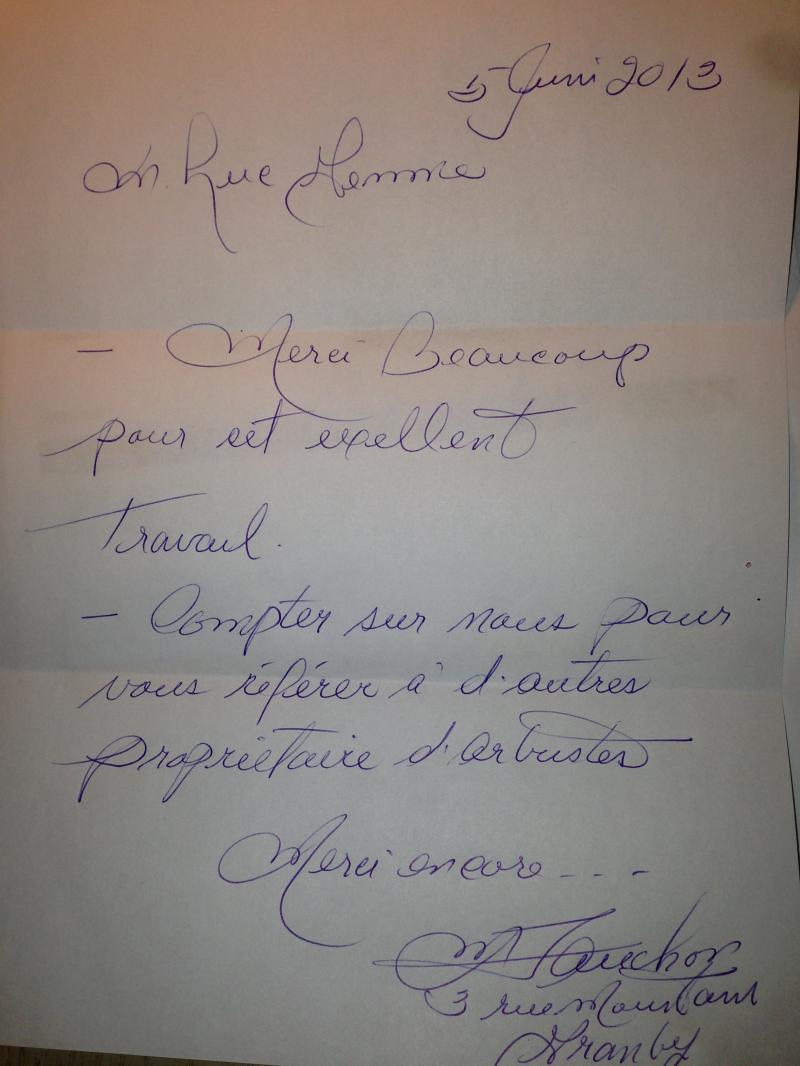 5 Juin 2013
M. Luc
- Merci Beaucoup
pour cet exellent
Travail.
- Compter sur nous pour
vous référer à d'autres
propriétaire d'arbustes
Merci encore - - -
3 rue
Granby